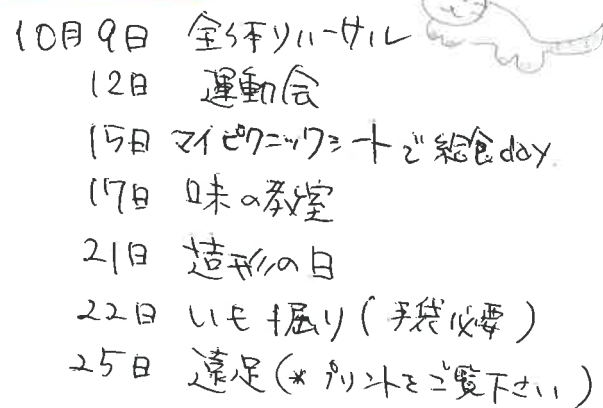 10月9日 全体リハーサル
12日 運動会
15日 マイピクニックシートで給食day
17日 味の教室
21日 造形の日
22日 いも掘り(手袋必要)
25日 遠足(*プリントをご覧下さい)